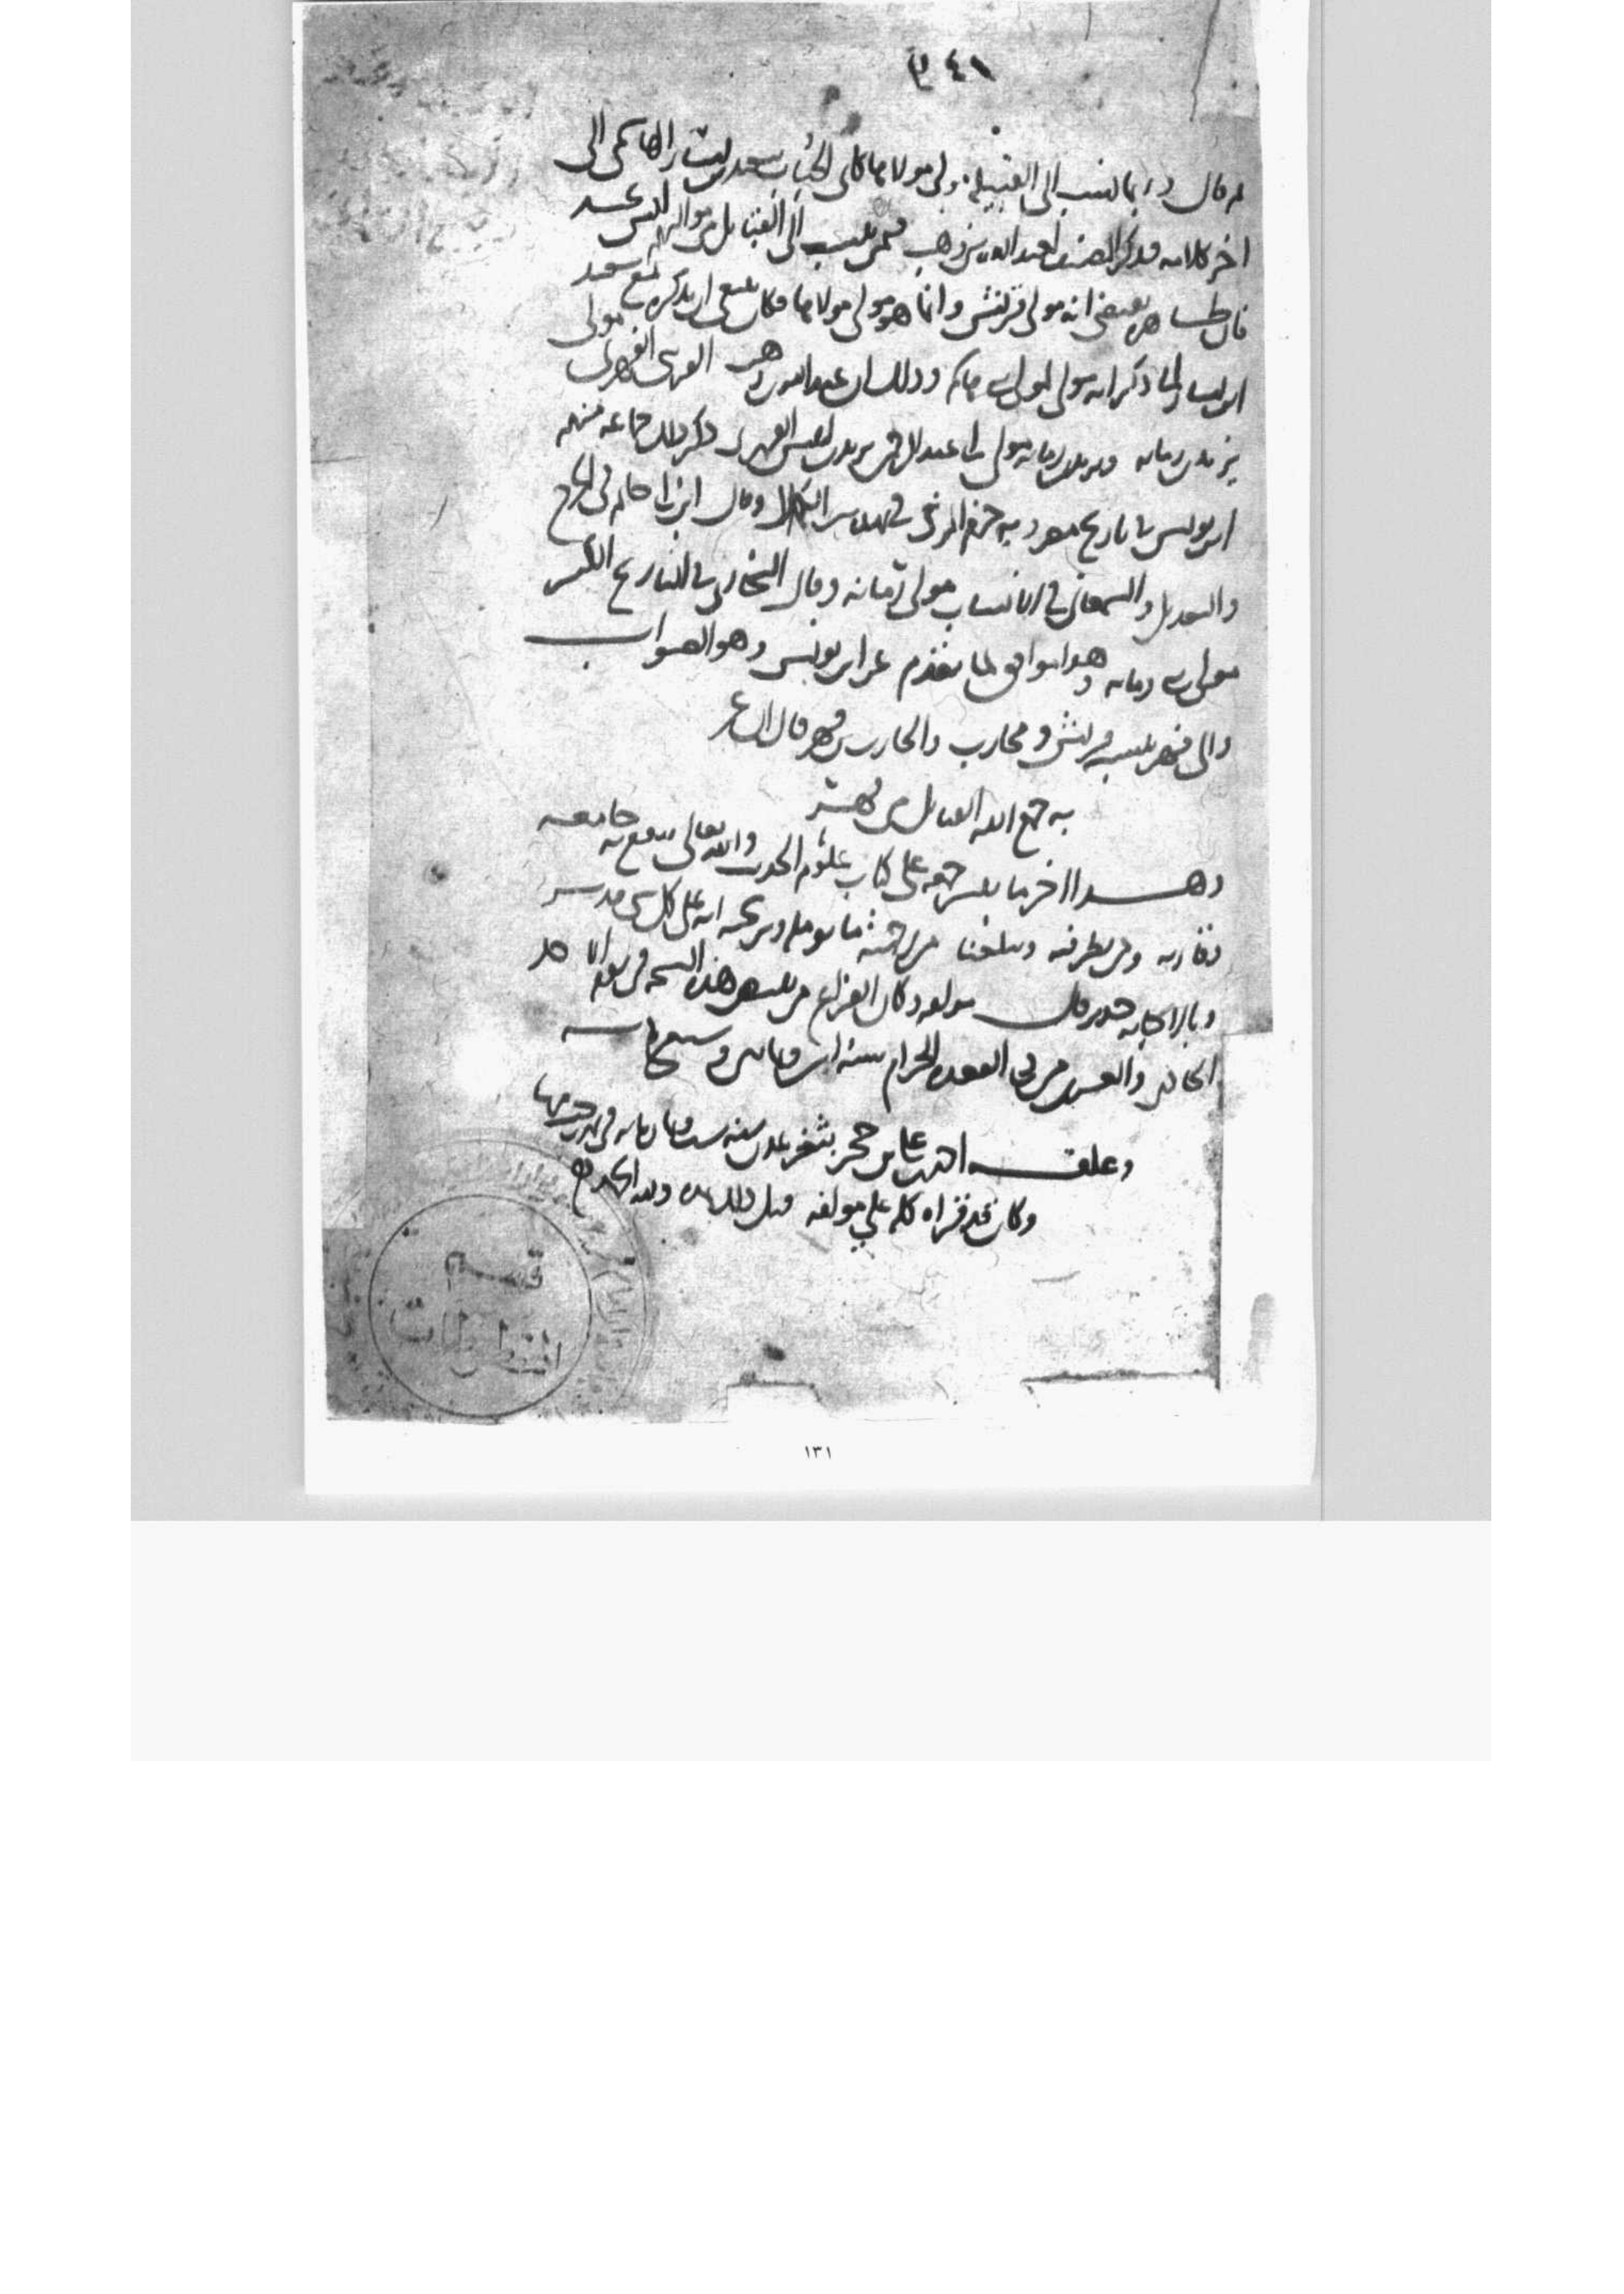 ٤١
قال وربما نسب الى القبيلة مولى مولاها كابي الحباب سعيد بن يسار الهاشمي الى
اخر كلامه فذكر المصنف لعبد الله بن وهب فيمن ينسب الى القبائل من مواليهم ليس بجيد
فان ظاهره يقتضي انه مولى قريش وانما هو مولى مولاها فكان ينبغي ان يذكره مع سعيد
ابن يسار لما ذكر انه مولى لمولى بني هاشم وذلك ان عبد الله بن وهب القرشي الفهري مولى
يزيد بن رمانه ويزيد بن رمانه مولى ابي عبد الرحمن يزيد بن انيس الفهري ذكر ذلك جماعه منهم
ابن يونس في تاريخ مصر وبه جزم المزي في تهذيب الكمال وقال ابن ابي حاتم في الجرح
والتعديل والسمعاني في الانساب مولى رمانه وقال البخاري في التاريخ الكبير
مولى بني رمانه وهذا موافق لما تقدم عن ابن يونس وهو الصواب
والى فهر ينسب قريش ومحارب والحارث بن فهر قال الشاعر
به جمع الله القبائل من فهر
وهذا اخر ما تيسر جمعه على كتاب علوم الحديث والله تعالى ينفع به جامعه
وقارئه ومن نظر فيه ويبلغنا من رحمته ما نؤمله ونرتجيه انه على كل شيء قدير
وبالاجابه جدير قال مولفه وكان الفراغ من تبييض هذه النسخه في يوم الاحد
الحادي والعشرين من ذي القعده الحرام سنه وسبعمائه
وعلقه احمد بن علي بن حجر بثغر عدن سنه ست وثمان مائه في
وكان قد قراه كله على مولفه قبل ذلك ولله الحمد
قسم
المخطوطات
١٣١